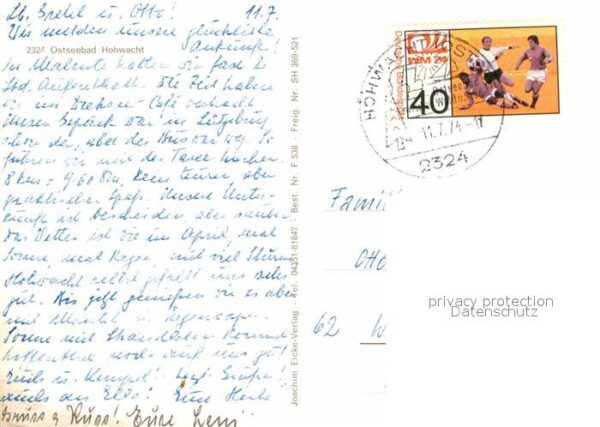 Lb. Gretel u. Otto! 11.7.
Wir melden unsere glückliche
Ankunft!
2324 Ostseebad Hohwacht
In Malente hatten wir fast 2
Std. Aufenthalt. Die Zeit haben
wir im Café
Unser Gepäck war in Lütjenburg
schon da, aber der Bus war weg. So
wir mit der Taxe
8 km = 9,60 DM, kein teurer aber
Spaß. Unsere Unter-
kunft ist bescheiden aber sauber.
Das Wetter ist wie im April, mal
Sonne mal Regen und viel Sturm
Hohwacht selbst gefällt uns sehr
gut. Bis jetzt genießen wir es aber
mit
Sonne und Strandleben kommt
hoffentlich noch auf uns zu!
Euch u. Grüße!
auch an Elli! Eure Herta
Gruss & Kuss! Eure Leni
Joachim Eicke-Verlag Tel. 04351-81847 Best. Nr. F 538 Freig. Nr. SH 369-521
WM 74
Deutsche Bundespost
40
HOHWACHT
11.7.74-17
2324
Famil
Otto
privacy protection
Datenschutz
62 W